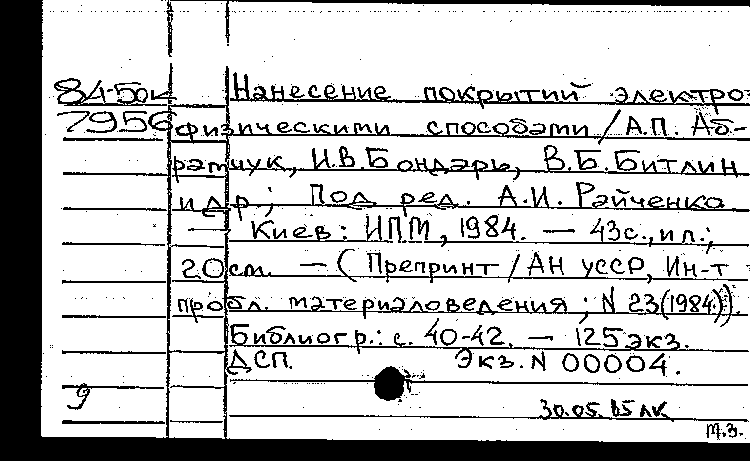 84-50к Нанесение покрытий электро-
7956 физическими способами / А.П. Аб-
рамчук, И.В. Бондарь, В.Б. Битлин
и др.; Под ред. А.И. Райченко
— Киев: ИПМ, 1984. — 43с., ил.;
20 см. — (Препринт / АН УССР, Ин-т
пробл. материаловедения; N 23(1984)).
Библиогр.: с. 40-42. — 125 экз.
ДСП. Экз. N 00004.
9
30.05.85 ЛК
т.з.